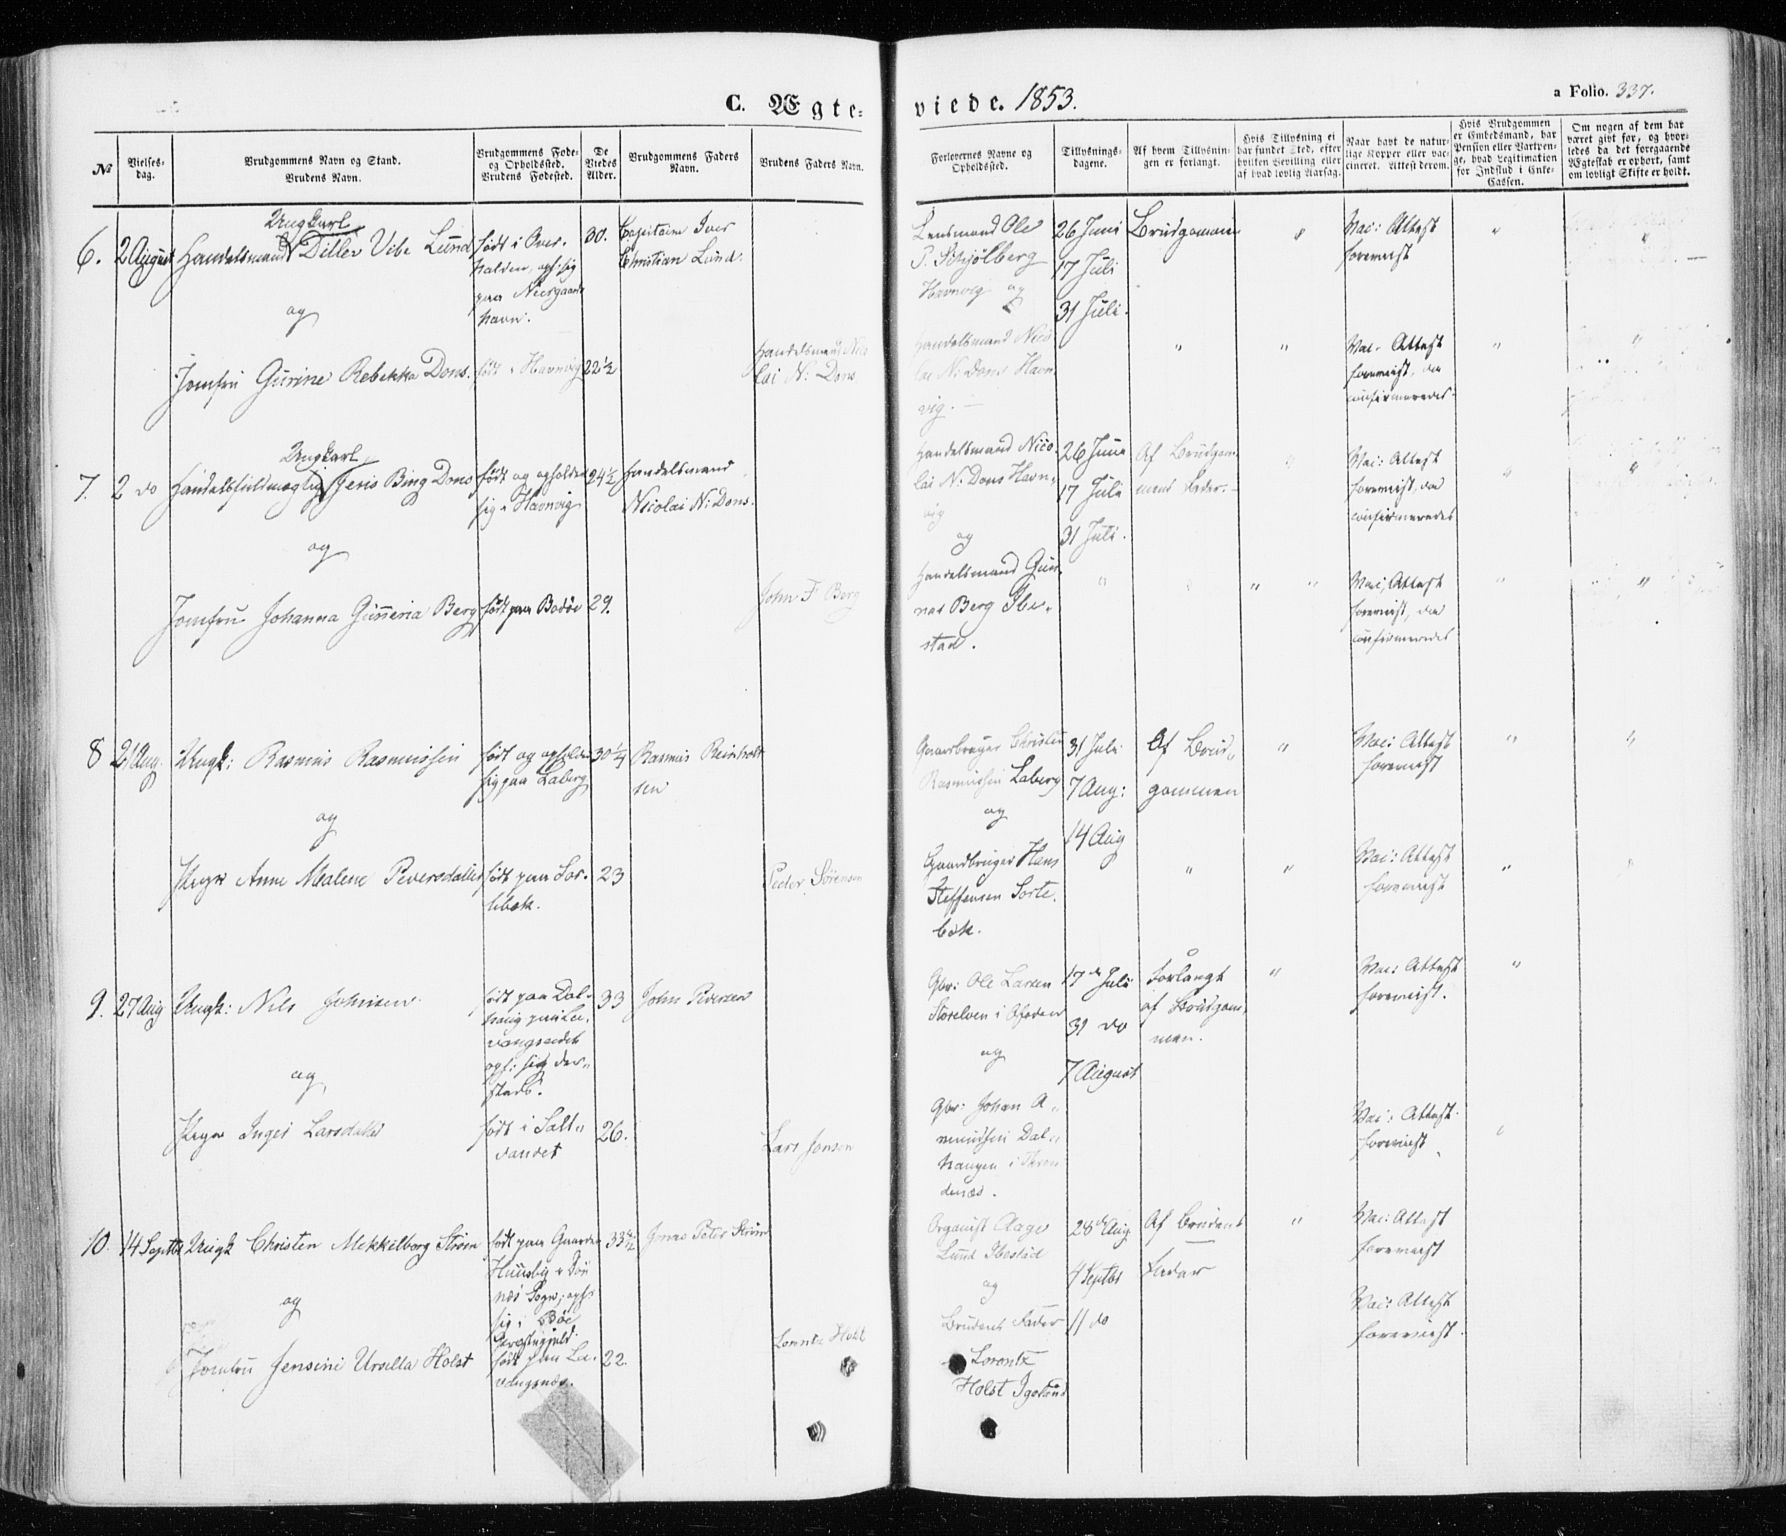 C. Ægte- viede. 1853. a Folio. 337.
№
Vielses-
dag.
Brudgommens Navn og Stand.
Brudens Navn.
Brudgommens Føde-
og Opholdssted.
Brudens Fødested.
De
Viedes
Alder.
Brudgommens Faders
Navn.
Brudens Faders Navn.
Forlovernes Navne og
Opholdssted.
Tillysnings-
dagene.
Af hvem Tillysnin-
gen er forlangt.
Hvis Tillysning ei
har fundet Sted, efter
hvilken Bevilling eller
af hvad lovlig Aarsag.
Naar havt de natur-
lige Kopper eller vac-
cineret. Attest derom.
Hvis Brudgommen
er Embedsmand, har
Pension eller Vartpen-
ge, hvad Legitimation
for Indskud i Enke-
Cassen.
Om nogen af dem har
været gift før, og hvor-
ledes da det foregaaende
Ægteskab er ophørt, samt
om lovligt Skifte er holdt.
6. 2 August
Ungkarl
Handelsmand Diller Vibe Lund
og
Jomfru Gurine Rebekka Dons.
født i Over-
halden, oph: sig
paa Neergaards
havn.
født i Havnvig
30.
22½
Capitain Iver
Christian Lund.
Handelsmand Nico
lai N: Dons
Lensmand Ole
P. Schjølberg
Havnvig og
Handelsmand Nico
lai N: Dons Havn
vig.
26 Juni
17 Juli
31 Juli.
Brudgommen
"
Vac: Attest
foreviist
Vac. Attest
foreviist, da
confirmeredes
7. 2 do
Ungkarl
Handelsfuldmægtig Jeris Bing Dons
og
Jomfru Johanna Gunneria Berg
født og opholder
sig i Havnvig
født paa Bodøe
24½
29.
Handelsmand
Nicolai N: Dons.
John F Berg
Handelsmand Nico
lai N: Dons Havn-
vig
og
Handelsmand Gun-
nar Berg Ibe-
stad.
26 Juni
17 Juli
31 Juli.
Af Brudgom
mens Fader.
Vac: Attest
foreviist, da
confirmeredes
Vac: Attest
foreviist, da
confirmeredes
8 21 Aug.
Ungk: Rasmus Rasmussen
og
Pige Anne Malene Pedersdatter
født og opholder
sig paa Laberg
født paa Sor-
tebæk.
30¼
23
Rasmus Reinholt
sen
Peder Sørensen
Gaardbruger Christen
Rasmussen Laberg
og
Gaardbruger Hans
Steffensen Sorte-
bæk.
31 Juli
7 Aug:
14 Aug
Af Brud-
gommen
"
Vac: Attest
foreviist
Vac: Attest
foreviist
9. 27 Aug
Ungk: Nils Johnsen
og
Pige Inger Larsdatter
født paa Dal-
haug
vangseidet
oph: sig der-
steds.
født i Salt-
vandet
33
26.
John Pedersen
Lars Jonsen
Gbr: Ole Larsen
Storelven i Ofoden
og
Gbr: Johan A-
mundsen Dal-
haugen i Tran
denæs.
17de Juli
31 do
7 August
Forlangt
af Brudgom-
men.
Vac: Attest
foreviist.
Vac: Attest
foreviist
10. 14 Septbr
Ungk Christen Mekkelborg Strøm
og
Jomfru Jensine Ursilla Holst
født paa Gaarden
Huusby i Dön
næs Sogn; oph:
sig i Böe
Præstegjeld.
født paa La-
vangsnæs.
33½
22.
Jonas Peter Strøm
Lorentz Holst
Organist Aage
Lund Ibestad
og
Brudens Fader
Lorentz
Holst
28de Aug
4 Septbr
11 do
Af Brudens
Fader
Vac: Attest
foreviist
Vac: Attest
foreviist.